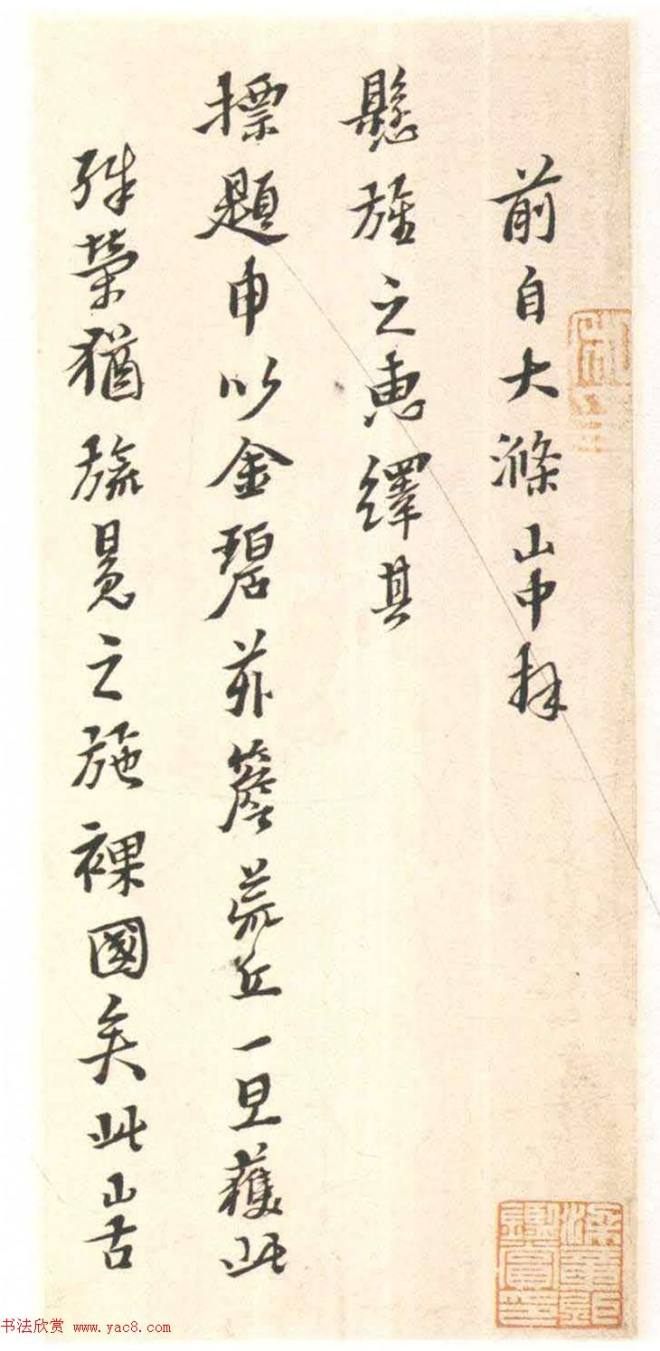 前自大滌山中拜
懸旌之惠繹其
摽題申以金碧茆簷荒丘一旦獲此
殊榮猶旒冕之施裸國矣此山古
书法欣赏 www.yac8.com